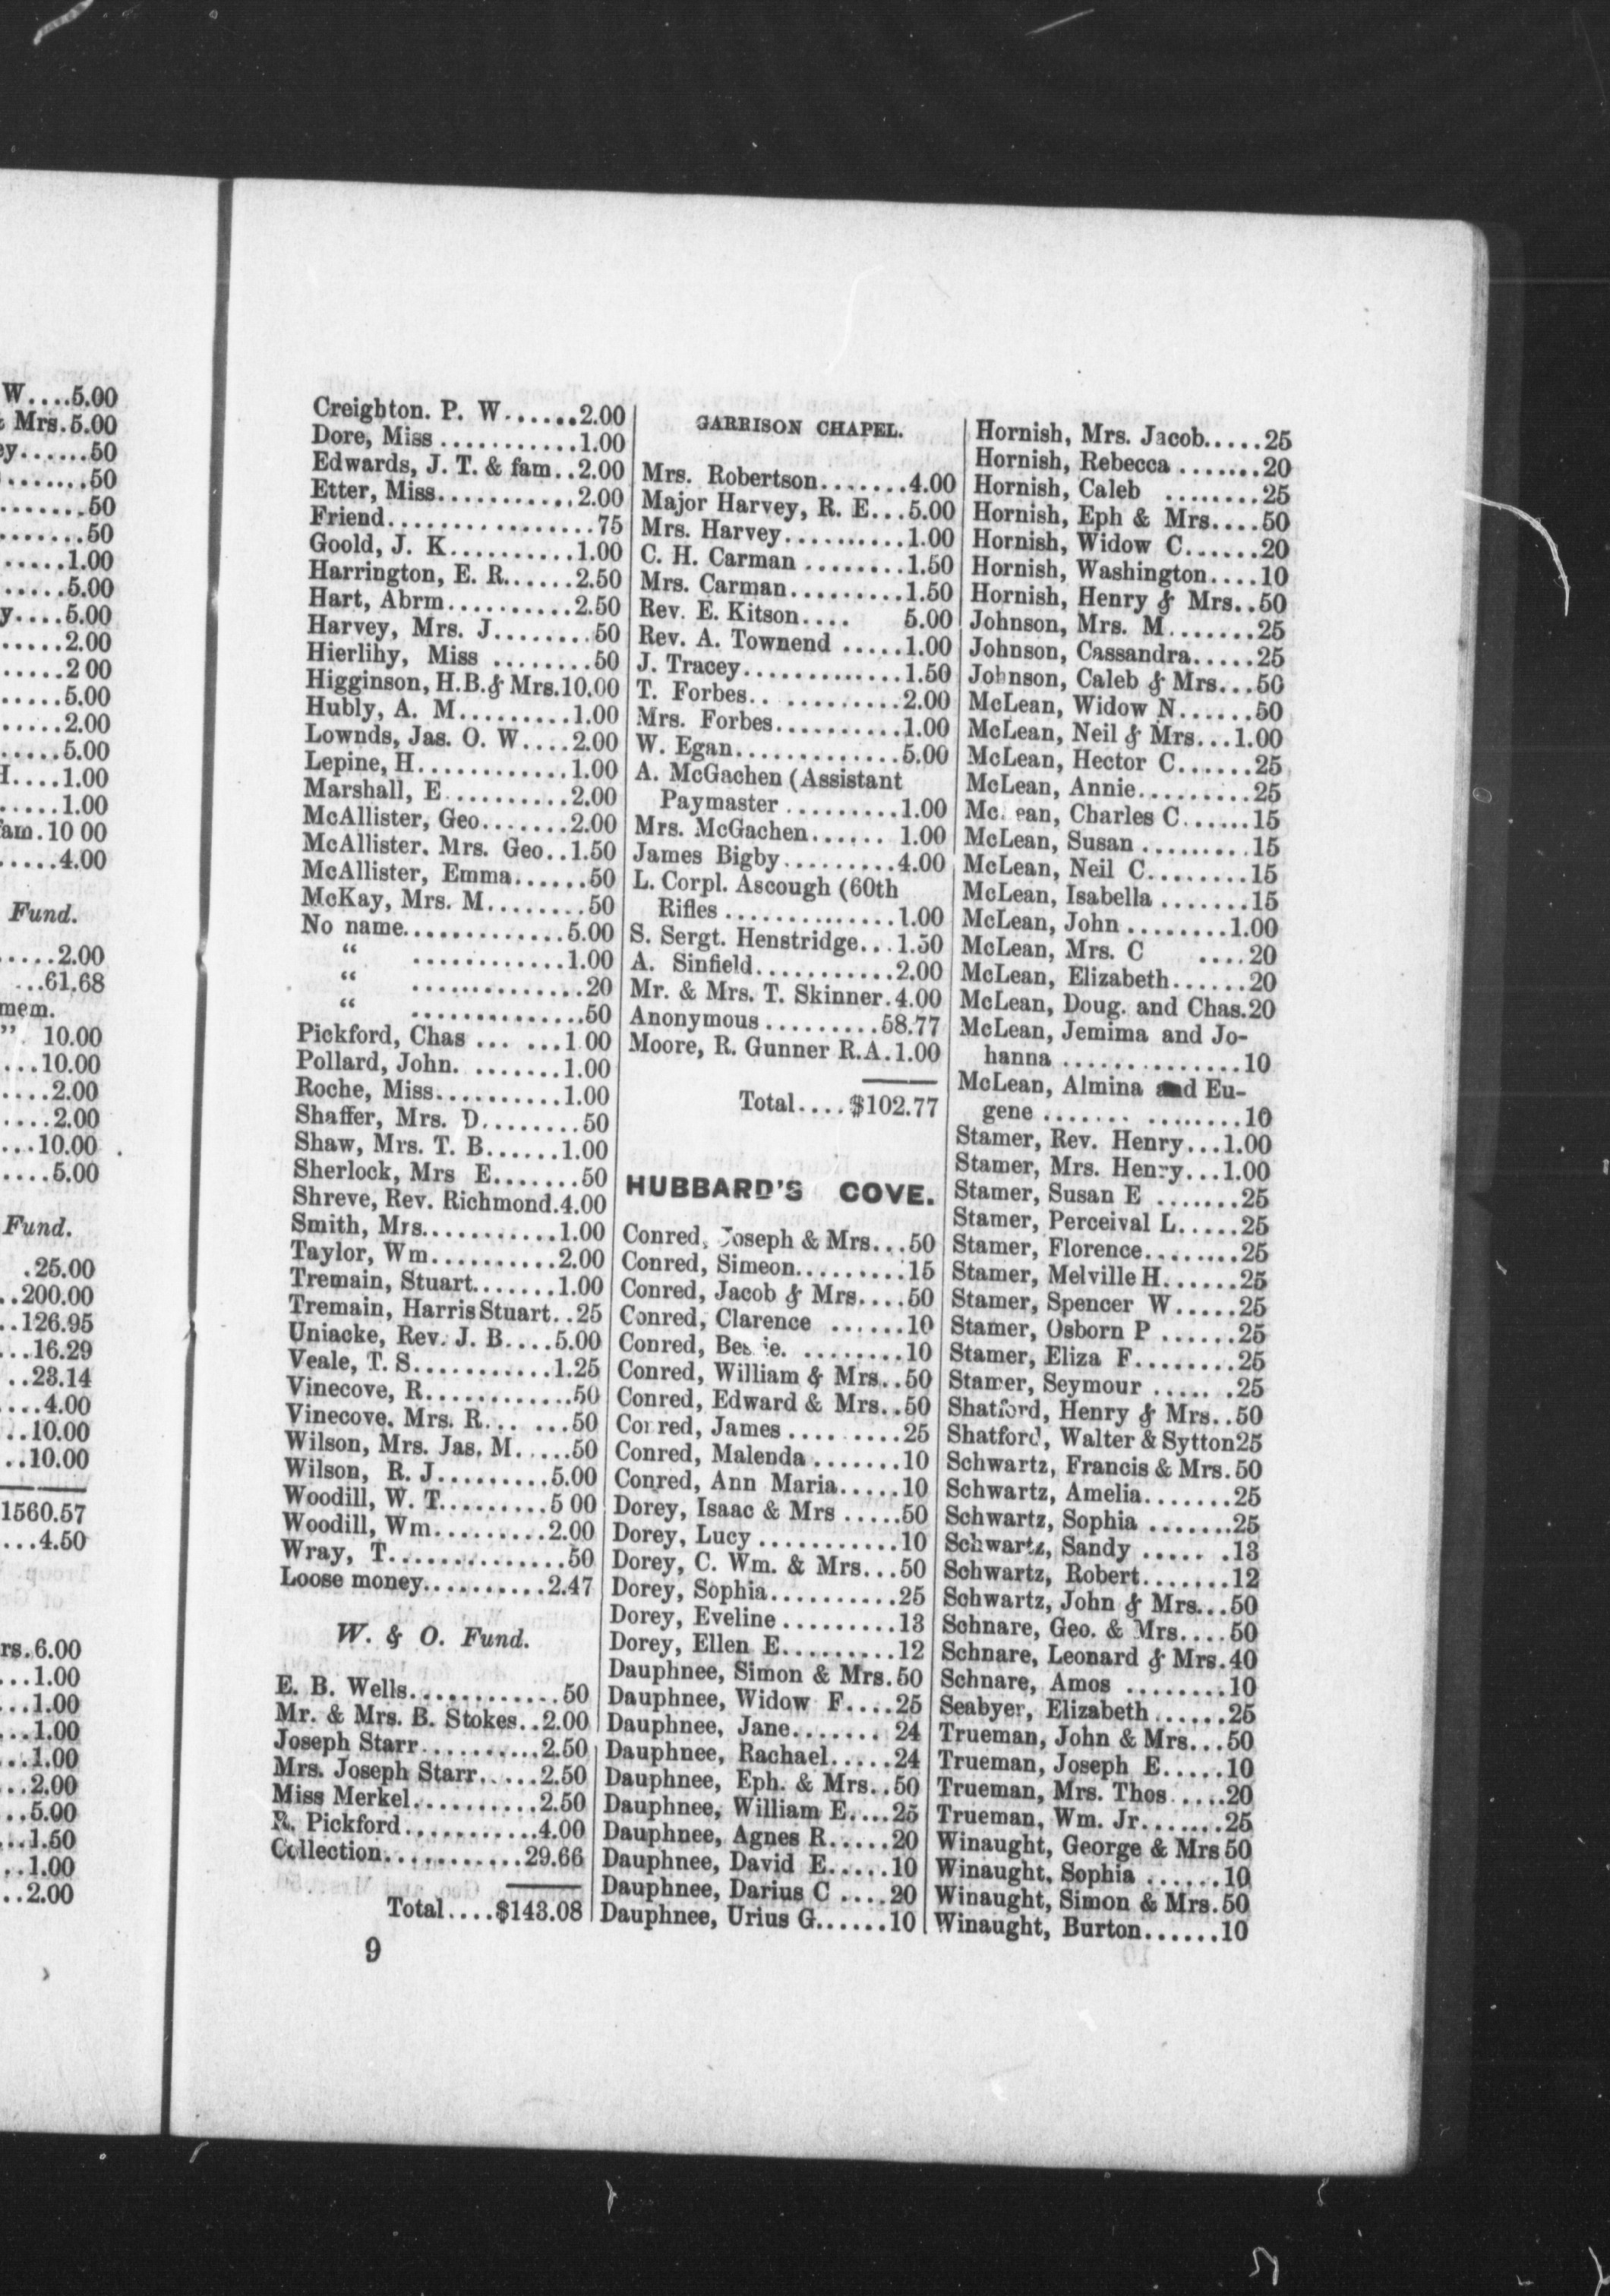 W....5.00
Mrs.5.00
ey......50
.......50
.......50
.......50
.....1.00
.....5.00
y....5.00
.....2.00
.....2 00
.....5.00
.....2.00
.....5.00
H....1.00
.....1.00
fam.10 00
.....4.00
Fund.
.....2.00
...61.68
mem.
" 10.00
...10.00
....2.00
....2.00
...10.00
....5.00
Fund.
.25.00
..200.00
..126.95
...16.29
..23.14
....4.00
..10.00
..10.00
1560.57
...4.50
rs.6.00
...1.00
...1.00
...1.00
...1.00
...2.00
...5.00
...1.50
..1.00
..2.00
Creighton. P. W......2.00
Dore, Miss ...........1.00
Edwards, J. T. & fam..2.00
Etter, Miss...........2.00
Friend................75
Goold, J. K..........1.00
Harrington, E. R......2.50
Hart, Abrm..........2.50
Harvey, Mrs. J........50
Hierlihy, Miss ........50
Higginson, H.B.& Mrs.10.00
Hubly, A. M.........1.00
Lownds, Jas. O. W....2.00
Lepine, H............1.00
Marshall, E..........2.00
McAllister, Geo.......2.00
McAllister. Mrs. Geo..1.50
McAllister, Emma......50
McKay, Mrs. M........50
No name.............5.00
" ............1.00
" ..............20
" ..............50
Pickford, Chas ... ...1 00
Pollard, John. .......1.00
Roche, Miss..........1.00
Shaffer, Mrs. D........50
Shaw, Mrs. T. B......1.00
Sherlock, Mrs E.......50
Shreve, Rev. Richmond.4.00
Smith, Mrs...........1.00
Taylor, Wm..........2.00
Tremain, Stuart.......1.00
Tremain, Harris Stuart..25
Uniacke, Rev. J. B....5.00
Veale, T. S...........1.25
Vinecove, R............50
Vinecove. Mrs. R... ...50
Wilson, Mrs. Jas. M.....50
Wilson, R. J.........5.00
Woodill, W. T.........5 00
Woodill, Wm.........2.00
Wray, T..............50
Loose money..........2.47
W. & O. Fund.
E. B. Wells............50
Mr. & Mrs. B. Stokes..2.00
Joseph Starr..........2.50
Mrs. Joseph Starr.....2.50
Miss Merkel..........2.50
R. Pickford...........4.00
Collection...........29.66
Total....$143.08
9
GARRISON CHAPEL.
Mrs. Robertson.......4.00
Major Harvey, R. E...5.00
Mrs. Harvey..........1.00
C. H. Carman ........1.50
Mrs. Carman.........1.50
Rev. E. Kitson.... 5.00
Rev. A. Townend .....1.00
J. Tracey.............1.50
T. Forbes.. .........2.00
Mrs. Forbes..........1.00
W. Egan.............5.00
A. McGachen (Assistant
Paymaster .........1.00
Mrs. McGachen...... 1.00
James Bigby.........4.00
L. Corpl. Ascough (60th
Rifles ..............1.00
S. Sergt. Henstridge...1.50
A. Sinfield...........2.00
Mr. & Mrs. T. Skinner.4.00
Anonymous.........58.77
Moore, R. Gunner R.A.1.00
Total....$102.77
HUBBARD'S COVE.
Conred, Joseph & Mrs...50
Conred, Simeon.........15
Conred, Jacob & Mrs....50
Conred, Clarence ......10
Conred, ........10
Conred, William & Mrs..50
Conred, Edward & Mrs..50
Conred, James .... .....25
Conred, Malenda .......10
Conred, Ann Maria.....10
Dorey, Isaac & Mrs .....50
Dorey, Lucy ...........10
Dorey, C. Wm. & Mrs...50
Dorey, Sophia..........25
Dorey, Eveline .........13
Dorey, Ellen E.........12
Dauphnee, Simon & Mrs.50
Dauphnee, Widow F....25
Dauphnee, Jane....... 24
Dauphnee, Rachael.....24
Dauphnee, Eph. & Mrs..50
Dauphnee, William E....25
Dauphnee, Agnes R.....20
Dauphnee, David E.....10
Dauphnee, Darius C ....20
Dauphnee, Urius G......10
Hornish, Mrs. Jacob.....25
Hornish, Rebecca .......20
Hornish, Caleb ........25
Hornish, Eph & Mrs....50
Hornish, Widow C......20
Hornish, Washington....10
Hornish, Henry & Mrs..50
Johnson, Mrs. M.......25
Johnson, Cassandra.....25
Johnson, Caleb & Mrs...50
McLean, Widow N......50
McLean, Neil & Mrs...1.00
McLean, Hector C......25
McLean, Annie.........25
McLean, Charles C......15
McLean, Susan .........15
McLean, Neil C........15
McLean, Isabella .......15
McLean, John .........1.00
McLean, Mrs. C ....20
McLean, Elizabeth......20
McLean, Doug. and Chas.20
McLean, Jemima and Jo-
hanna ................10
McLean, Almina and Eu-
gene ....... ........10
Stamer, Rev. Henry...1.00
Stamer, Mrs. Henry...1.00
Stamer, Susan E .......25
Stamer, Perceival L.....25
Stamer, Florence........25
Stamer, Melville H......25
Stamer, Spencer W.....25
Stamer, Osborn P ......25
Stamer, Eliza F........25
Stamer, Seymour ..... .25
Shatford, Henry & Mrs..50
Shatford, Walter & Sytton25
Schwartz, Francis & Mrs.50
Schwartz, Amelia.......25
Schwartz, Sophia .......25
Schwartz, Sandy ..... .13
Schwartz, Robert.......12
Schwartz, John & Mrs...50
Schnare, Geo. & Mrs....50
Schnare, Leonard & Mrs.40
Schnare, Amos ........10
Seabyer, Elizabeth......25
Trueman, John & Mrs...50
Trueman, Joseph E.....10
Trueman, Mrs. Thos.....20
Trueman, Wm. Jr.......25
Winaught, George & Mrs 50
Winaught, Sophia ......10
Winaught, Simon & Mrs.50
Winaught, Burton......10